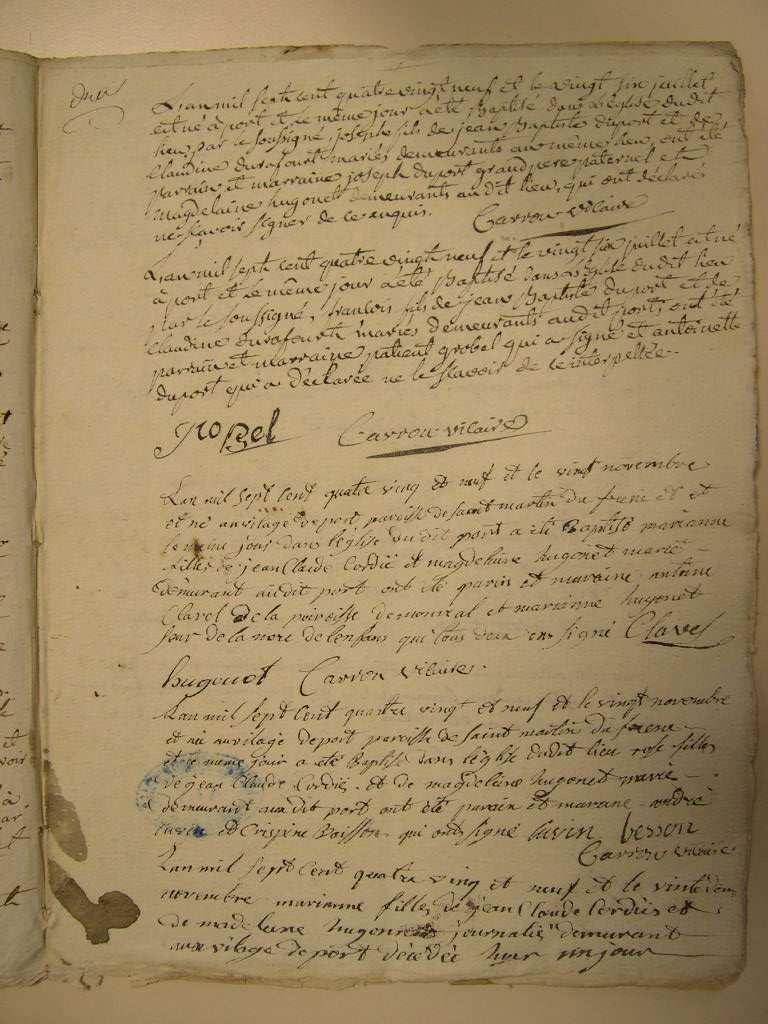 L'an mil sept cent quatre vingt neuf et le vingt six juillet
est né à port et le même jour à été Baptisé dans l'église dudit
lieu par le soussigné, joseph fils de jean Baptiste duport et de
Claudine durafourt mariés demeurants au même lieu, ont été
parrain et marraine joseph duport grand pere paternel et
magdelaine hugonet demeurants audit lieu, qui ont déclarés
ne sçavoir signer de ce enquis. Carron vicaire
L'an mil sept cent quatre vingt neuf et le vingt six juillet est né
à port et le même jour à été Baptisé dans l'église dudit lieu
par le soussigné, francois fils de jean Baptiste duport et de
Claudine durafourt mariés demeurants audit port, ont été
parrain et marraine patient grobel qui a signé et antoinette
duport qui a déclarée ne le sçavoir de ce interpellée.
Grobel Carron vicaire
Lan mil sept cent quatre ving et neuf et le vingt novembre
et né au vilage de port paroisse de saint martin du frene et et
le meme jour dans léglise du dit port a été Baptisé marianne
filles de jean Claude Cordié et magdeleine hugonet marié
demeurant audit port ont été parin et maraine antoine
Clavel de la paroisse de monreal et marianne hugonet
sœur de la mere de lenfans qui tous deux on signé Clavel
hugonet Carron vicaire.
Lan mil sept cent quattre vingt et neuf et le vingt novembre
et né au vilage de port paroisse de Saint martin du frene
et le meme jour a été Baptisé dans léglise dudit lieu rose filles
de jean Claude Cordiés et de magdeleine hugonet marié
demeurant au dit port ont été parain et maraine andré
et Crispine qui ont signé besson
Carron vicaire
Lan mil sept cent quatre ving et neuf et le vinte deux
novembre marianne filles de jean Claude Cordiés et
de madelene hugonet journalié demeurant
au vilage de port décédée hier un jour